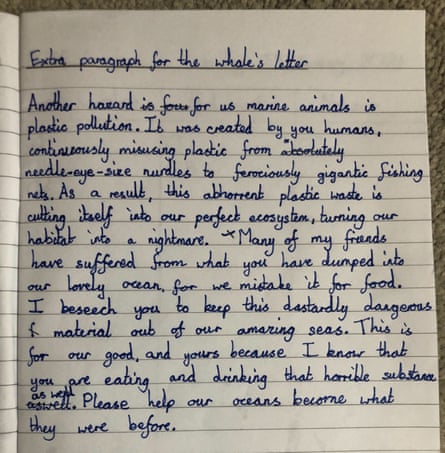 Extra paragraph for the whale's letter
Another hazard is four for us marine animals is
plastic pollution. It was created by you humans,
continuously misusing plastic from absolutely
needle-eye-size nurdles to ferociously gigantic fishing
nets. As a result, this abhorrent plastic waste is
cutting itself into our perfect ecosystem, turning our
habitat into a nightmare. *Many of my friends
have suffered from what you have dumped into
our lovely ocean, for we mistake it for food.
I beseech you to keep this dastardly dangerous
material out of our amazing seas. This is
for our good, and yours because I know that
you are eating and drinking that horrible substance
as well
aswell. Please help our oceans become what
they were before.